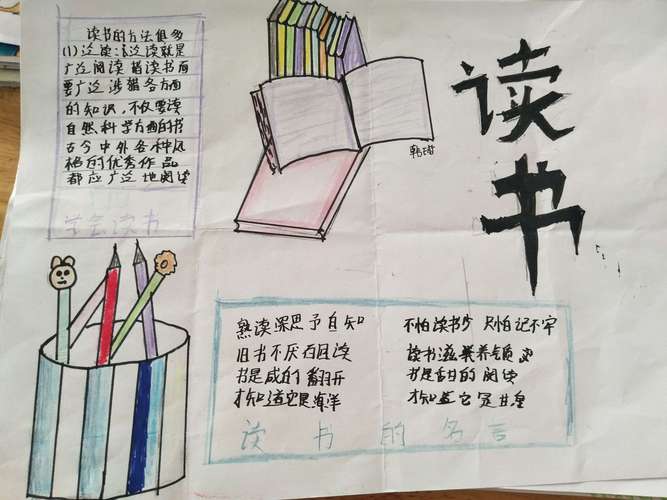 读书的方法很多
(1)泛读:泛读就是
广泛阅读 指读书面
要广泛 涉猎各方面
的知识,不仅要读
自然科学方面的书
古今中外各种风
格的优秀作品
都应广泛地阅读
学会读书
读书
熟读深思子自知
旧书不厌百回读
书是咸的 翻开
才知道它是海洋
不怕读书少 只怕记不牢
读书滋养
书是甜的 阅读
才知道它是甘
读书的名言